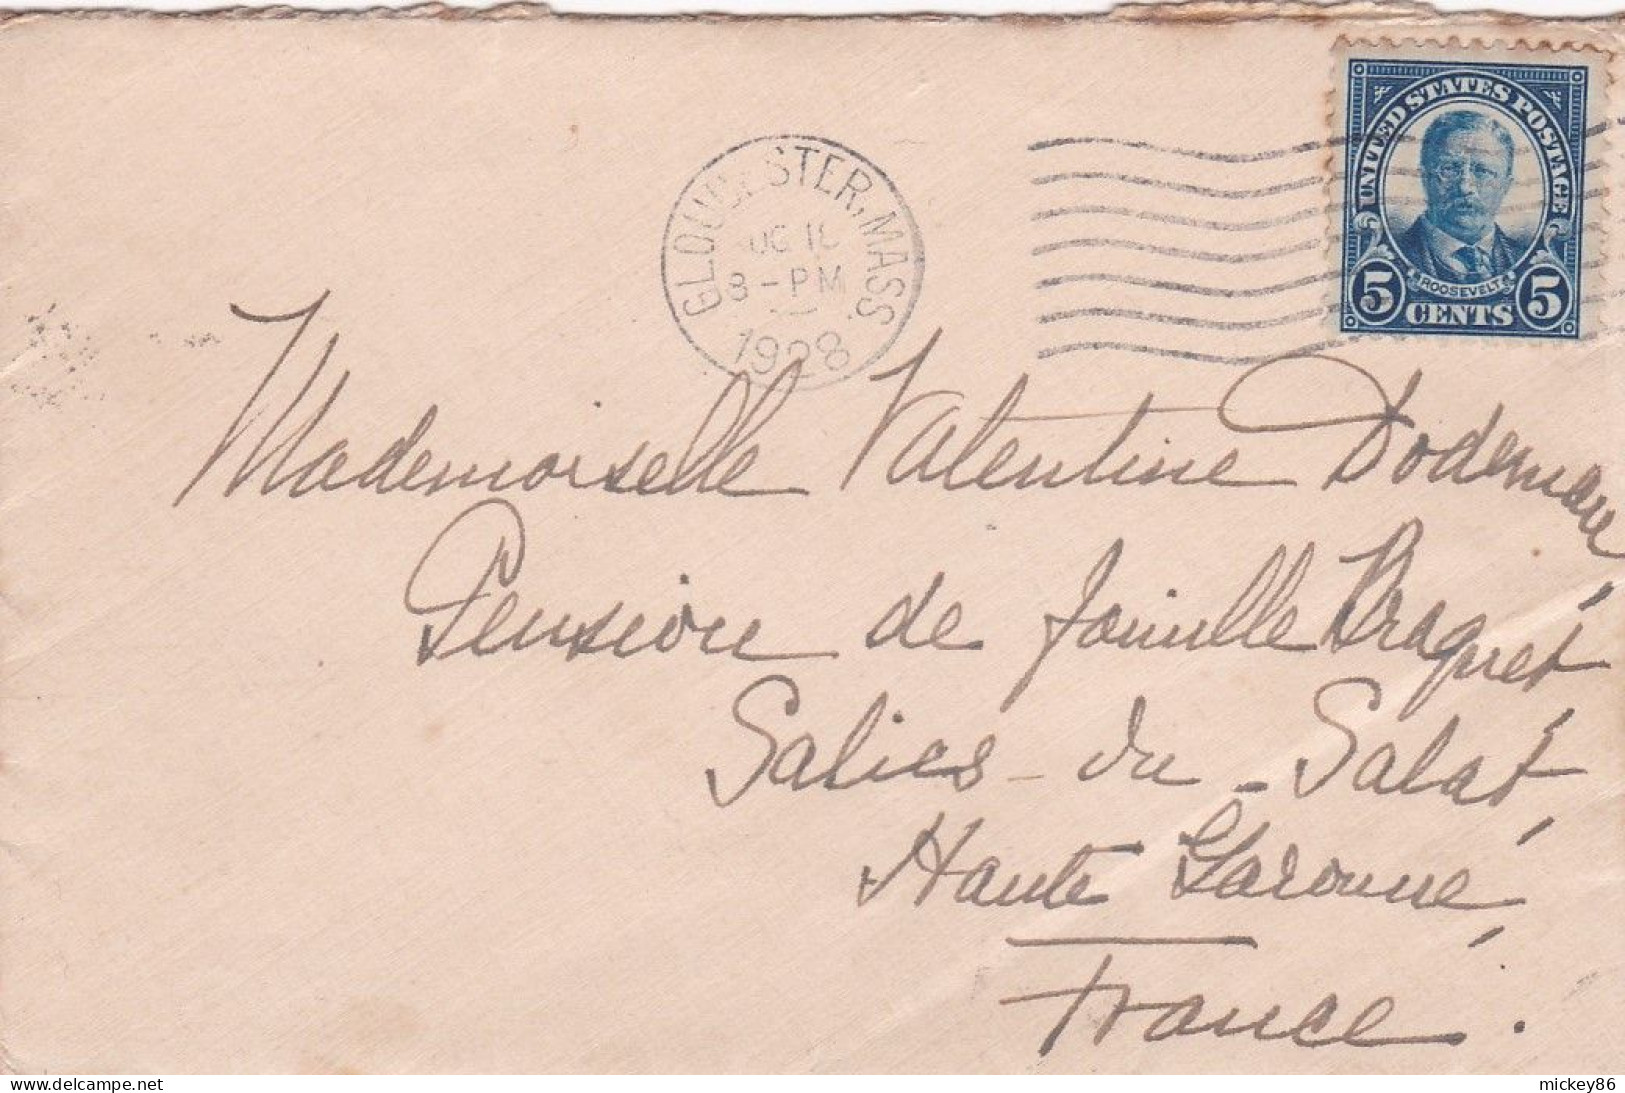 GLOUCESTER, MASS.
8 - PM
1928
UNITED STATES POSTAGE
ROOSEVELT
5 CENTS 5
Mademoiselle Valentine
Pension de famille Braquet,
Salies - du - Salat,
Haute Garonne,
France.
www.delcampe.net
mickey86